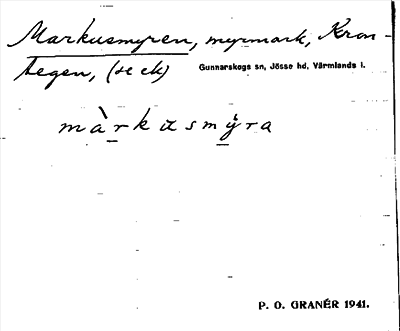 Markusmyren, myrmark, Kron-
tegen, (se ek)
Gunnarskogs sn, Jösse hd, Värmlands l.
màrkusmy̌ra
P. O. GRANÉR 1941.